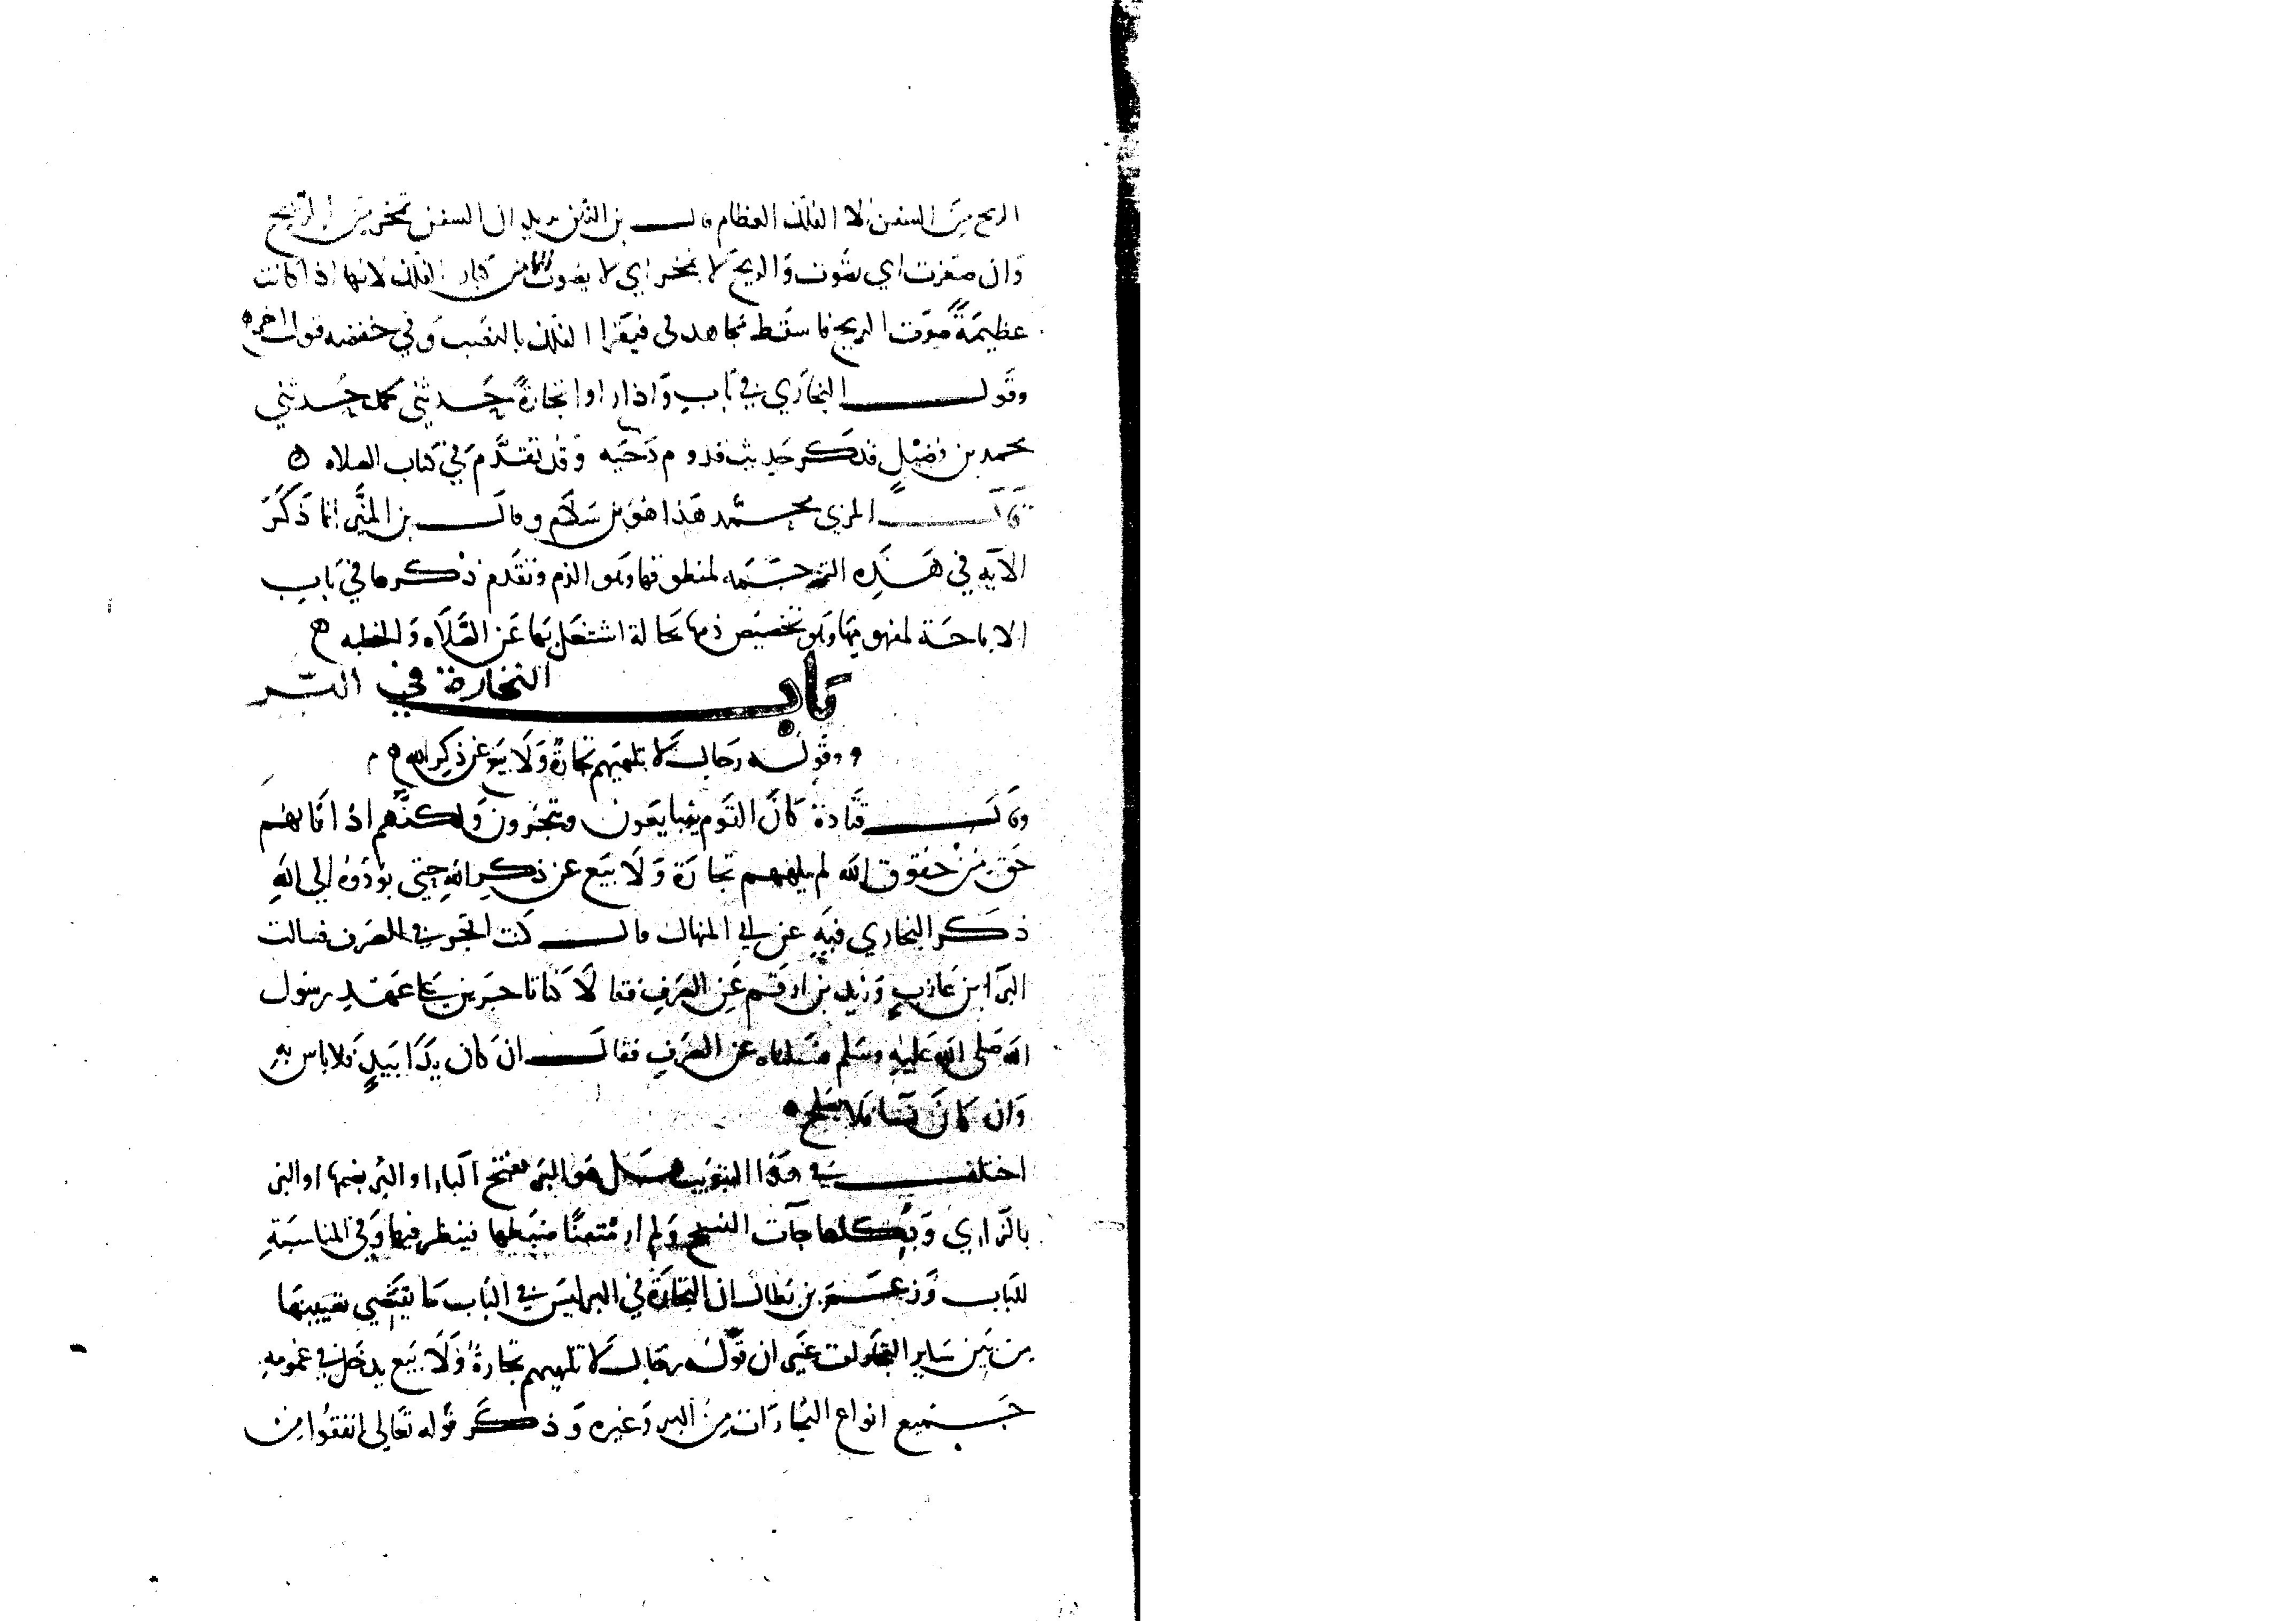 الريح من السفن الا الفلك العظام قال بن التين يريد ان السفن تمخر من الريح
وان صغرت اي تصوت والريح لا تمخر اي لا تصوت من كبار الفلك لانها اذا كانت
عظيمة صوتت الريح فاسقط مجاهد في فيقرا الفلك بالنصب وفي خفضه قول اخر ه
وقول البخاري في باب واذا راوا تجارة حدثني محمد حدثني
محمد بن فضيل فذكر حديث قدوم دحيه وقد تقدم في كتاب الصلاه ه
قال المزي محمد هذا هو بن سلام وقال بن المنير انما ذكر
الايه في هذه الترجمه لمنطوقها وهو الذم وتقدم ذكرها في باب
الاباحة لمفهومها وهو تخصيص ذمها بحالة اشتغل بها عن الصلاه والخطبه ه
باب التجارة في البر
وقوله رجال لا تلهيهم تجارة ولا بيع عن ذكر الله ه
وقال قتادة كان القوم يتبايعون ويتجرون ولكنهم اذا نابهم
حق من حقوق الله لم يلههم تجارة ولا بيع عن ذكر الله حتى يؤدوه الى الله
ذكر البخاري فيه عن ابي المنهال قال كنت اتجر في الصرف فسالت
البرا بن عازب وزيد بن ارقم عن الصرف فقالا كنا تاجرين على عهد رسول
الله صلى الله عليه وسلم فسالناه عن الصرف فقال ان كان يدا بيد فلا باس به
وان كان نسا فلا يصلح ه
اختلف في هذا التبويب هل هو البر بفتح الباء او البر بضمها او البز
بالزاي وبكلها جآت النسخ ولم ار متقنا ضبطها فينظر فيها وفي المناسبة
للباب وزعم بن بطال ان التجارة في البر ليس في الباب ما يقتضي تعيينها
من بين ساير التجارات غير ان قوله رجال لا تلهيهم تجارة ولا بيع يدخل في عمومه
جميع انواع التجارات من البر وغيره وذكر قوله تعالى انفقوا من